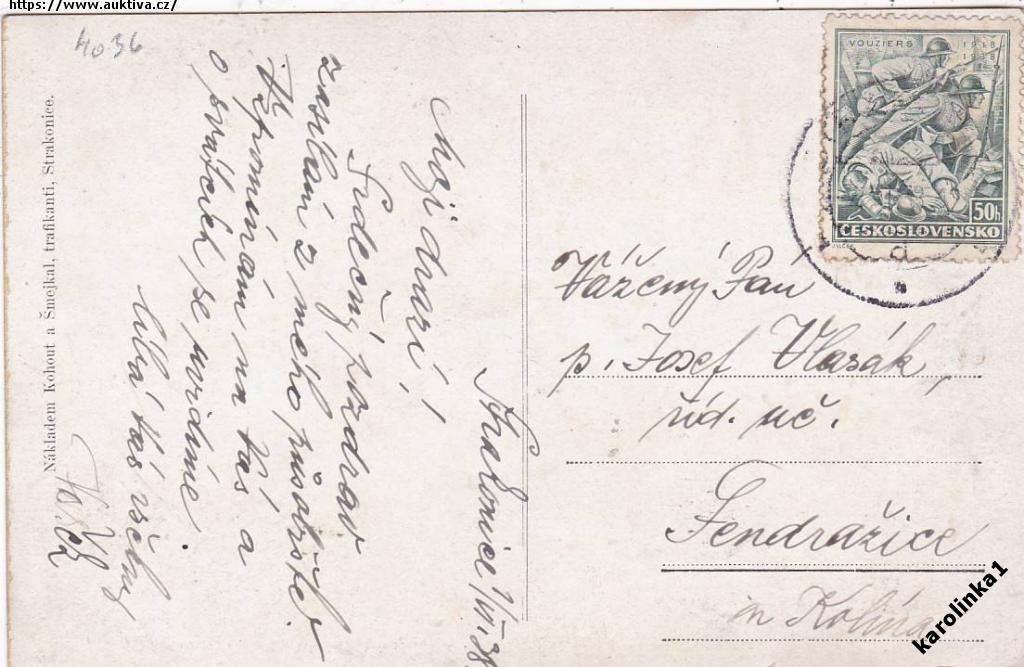 https://www.auktiva.cz/
4036
Nákladem Kohout a Šmejkal, trafikanti, Strakonice.
Strakonice 1/VI. 38
Moji drazí!
Srdečný pozdrav
zasílám z mého působiště.
Vzpomínám na Vás a
o prázdnách se uvidíme.
líbá Vás všechny
VOUZIERS 1918
1938
50h
ČESKOSLOVENSKO
Vážený Pán
p. Josef Vlasák,
říd. uč.
Jendražice
u Kolína
karolinka1